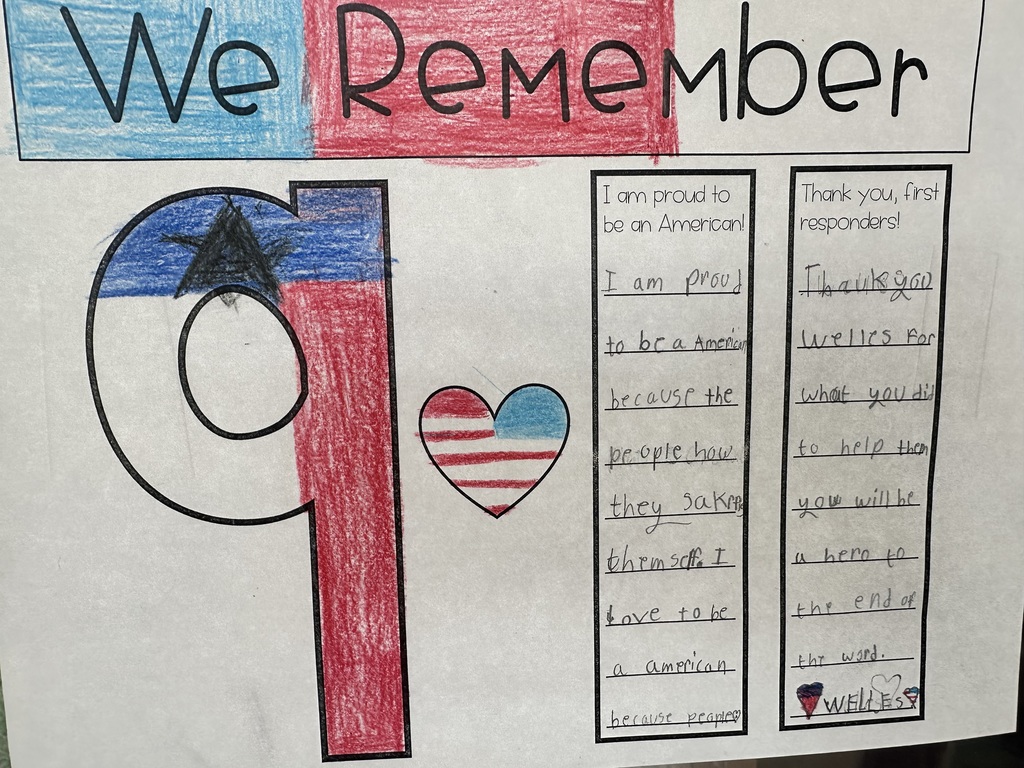 We Remember
9
I am proud to
be an American!
I am proud
to be a American
because the
people how
they sakrifis
themself. I
Love to be
a american
because people
Thank you, first
responders!
Thank you
Welles For
what you did
to help them
you will be
a hero to
the end of
the word.
WELLES